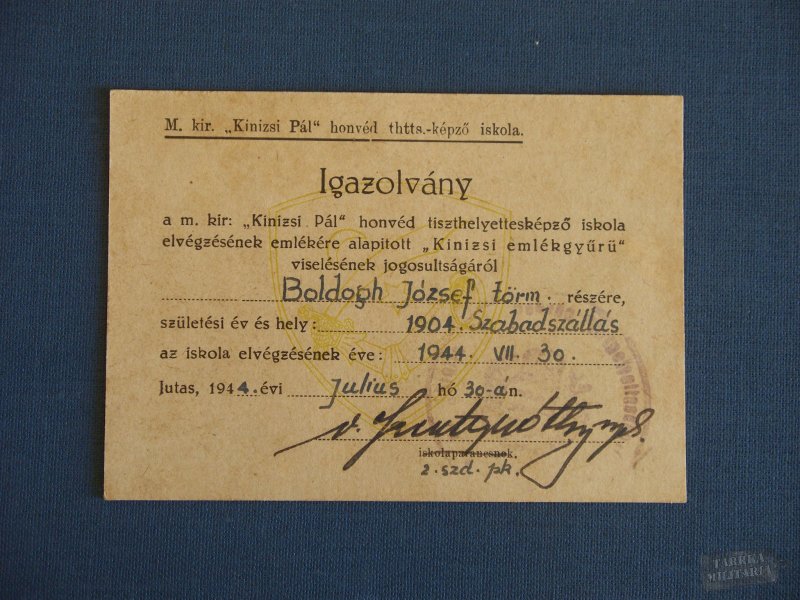 M. kir. „Kinizsi Pál" honvéd thtts.-képző iskola.
Igazolvány
a m. kir: „Kinizsi Pál" honvéd tiszthelyettesképző iskola
elvégzésének emlékére alapitott „Kinizsi emlékgyűrű"
viselésének jogosultságáról
Boldogh József törm. részére,
születési év és hely: 1904. Szabadszállás
az iskola elvégzésének éve: 1944. VII. 30.
Jutas, 1944. évi Julius hó 30-án.
iskolaparancsnok.
2. szd. pk.
TARRKA
MILITARIA